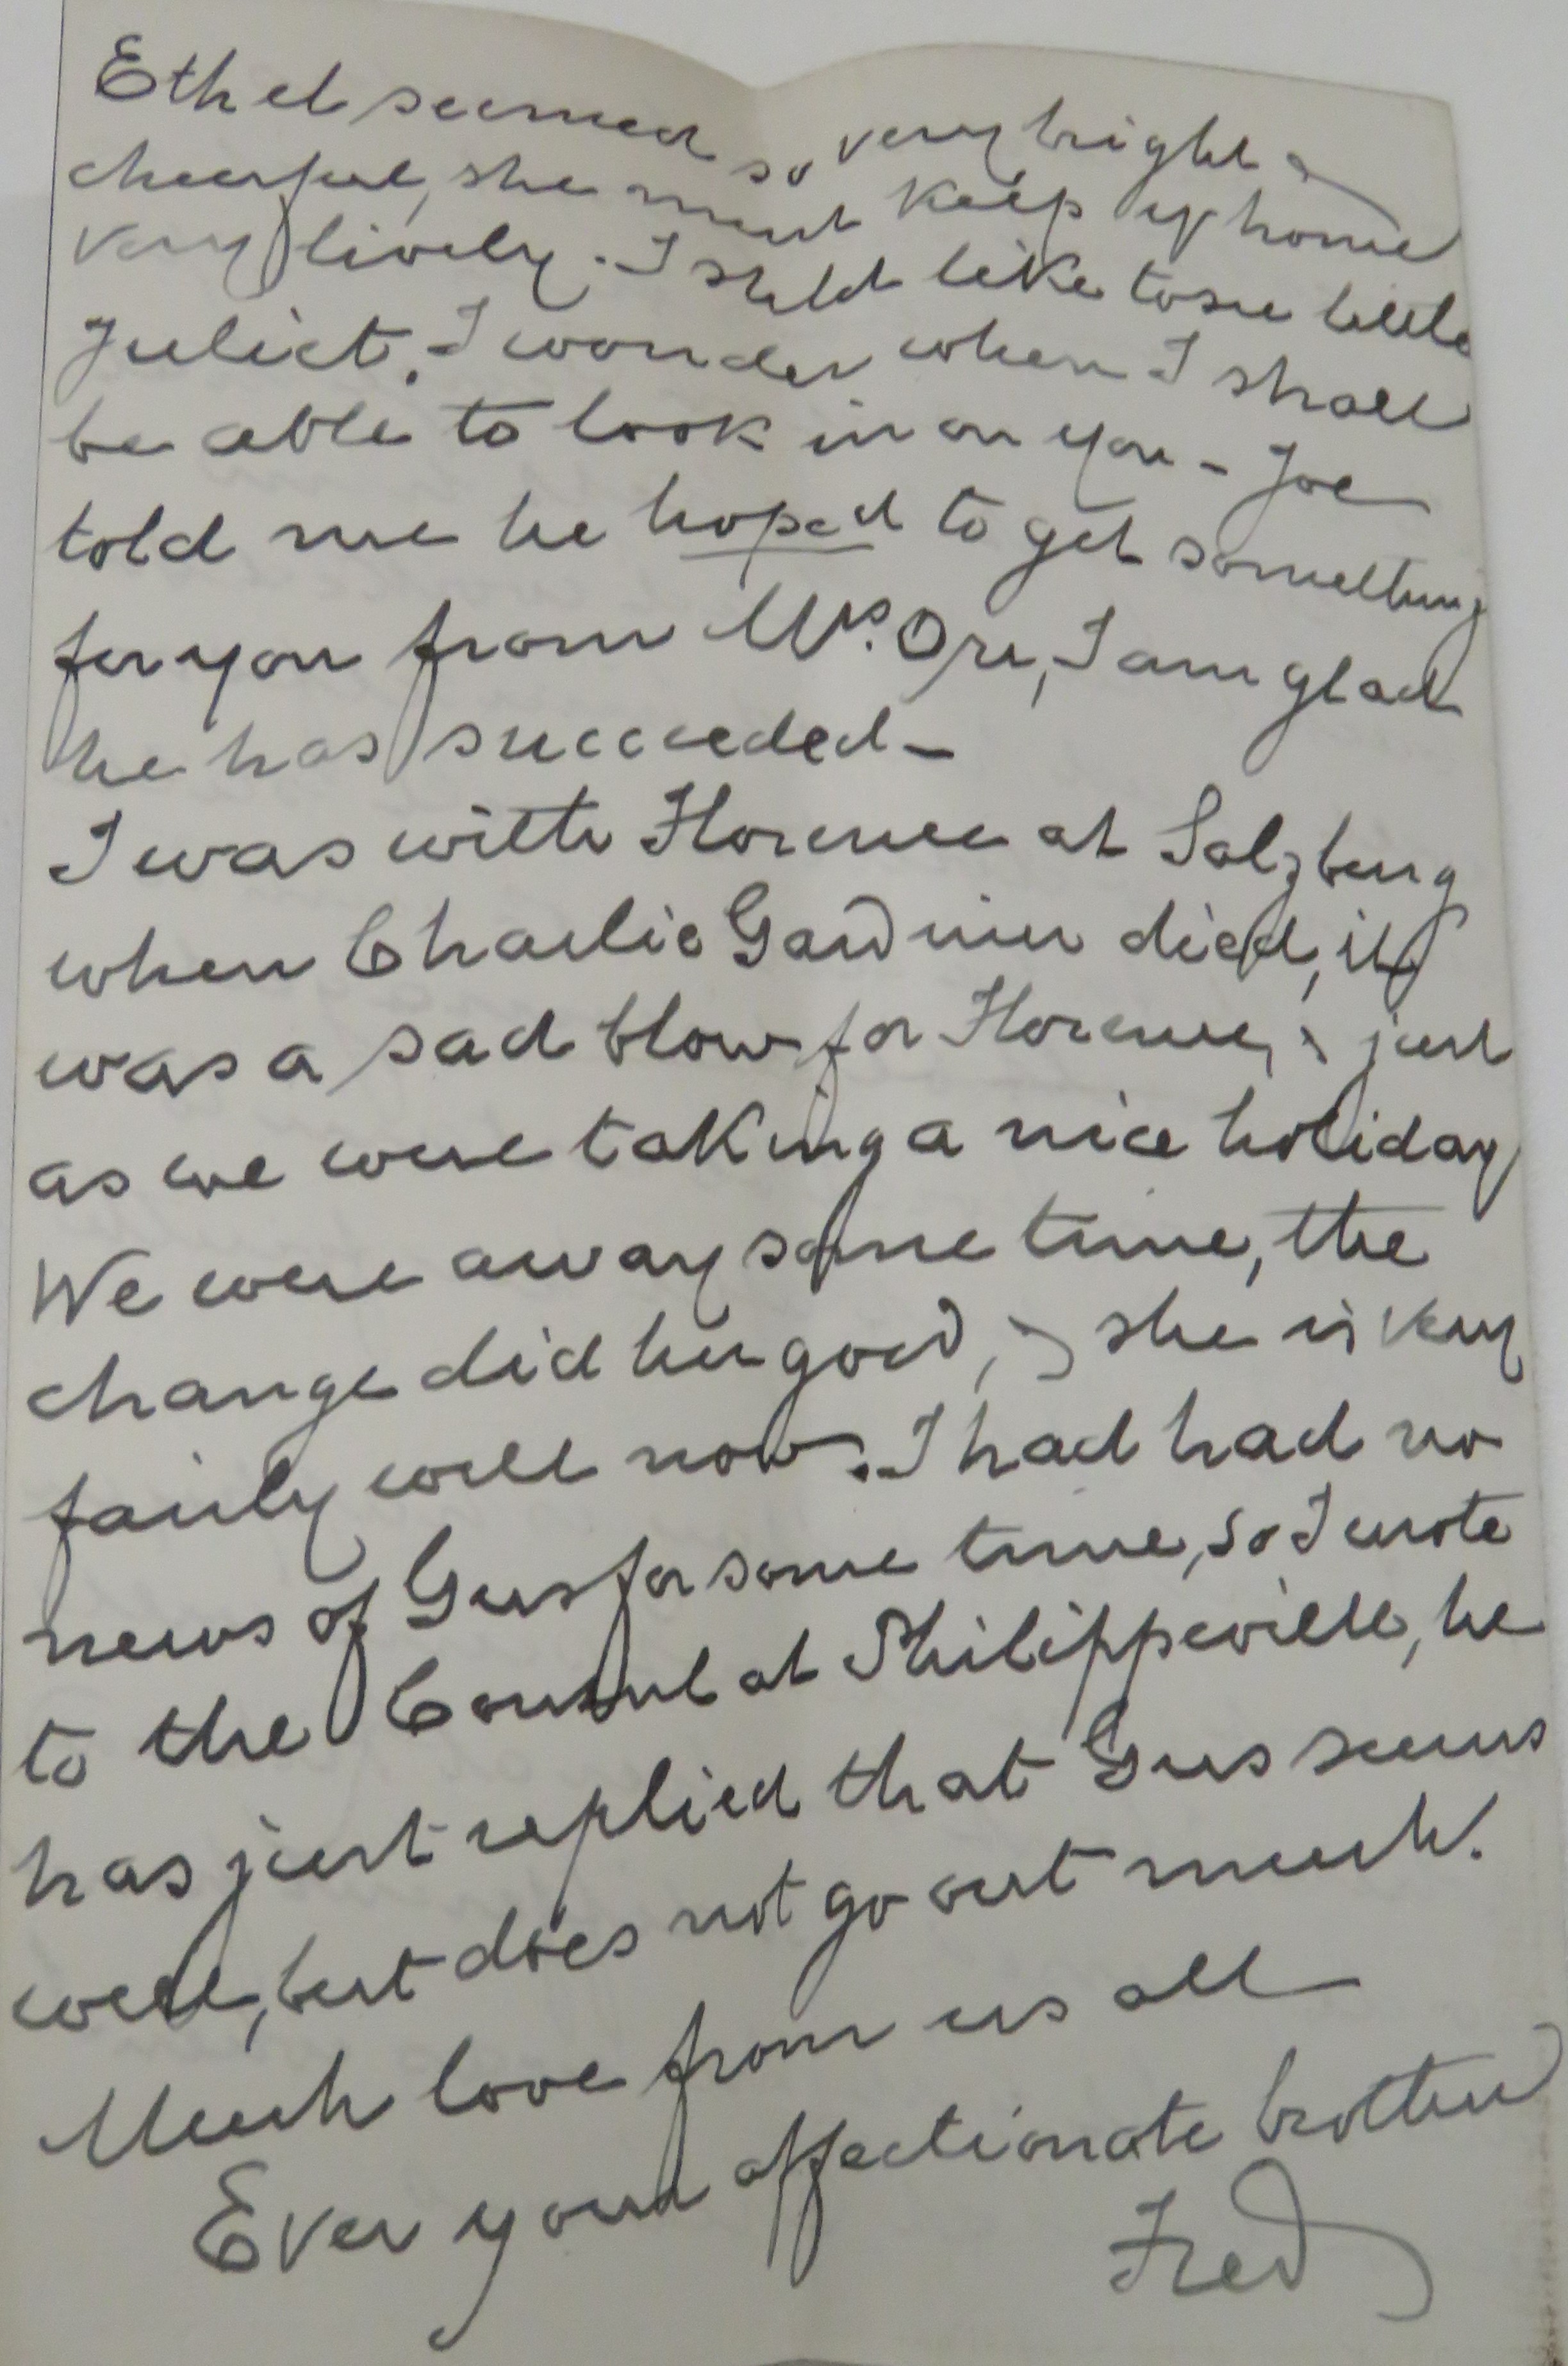 Ethel seemed so very bright &
cheerful, she must keep yr home
very lively. I shld like to see little
Juliet. I wonder when I shall
be able to look in on you - Joe
told me he hoped to get something
for you from Mrs. Ore, I am glad
he has succeeded -
I was with Florence at Salzburg
when Charlie Gardiner died, it
was a sad blow for Florence, & just
as we were taking a nice holiday
We were away some time, the
change did her good, & she is very
fairly well now. I had had no
news of Gus for some time, so I wrote
to the Consul at Philippeville, he
has just replied that Gus seems
well, but does not go out much.
Much love from us all
Ever your affectionate brother
Fred